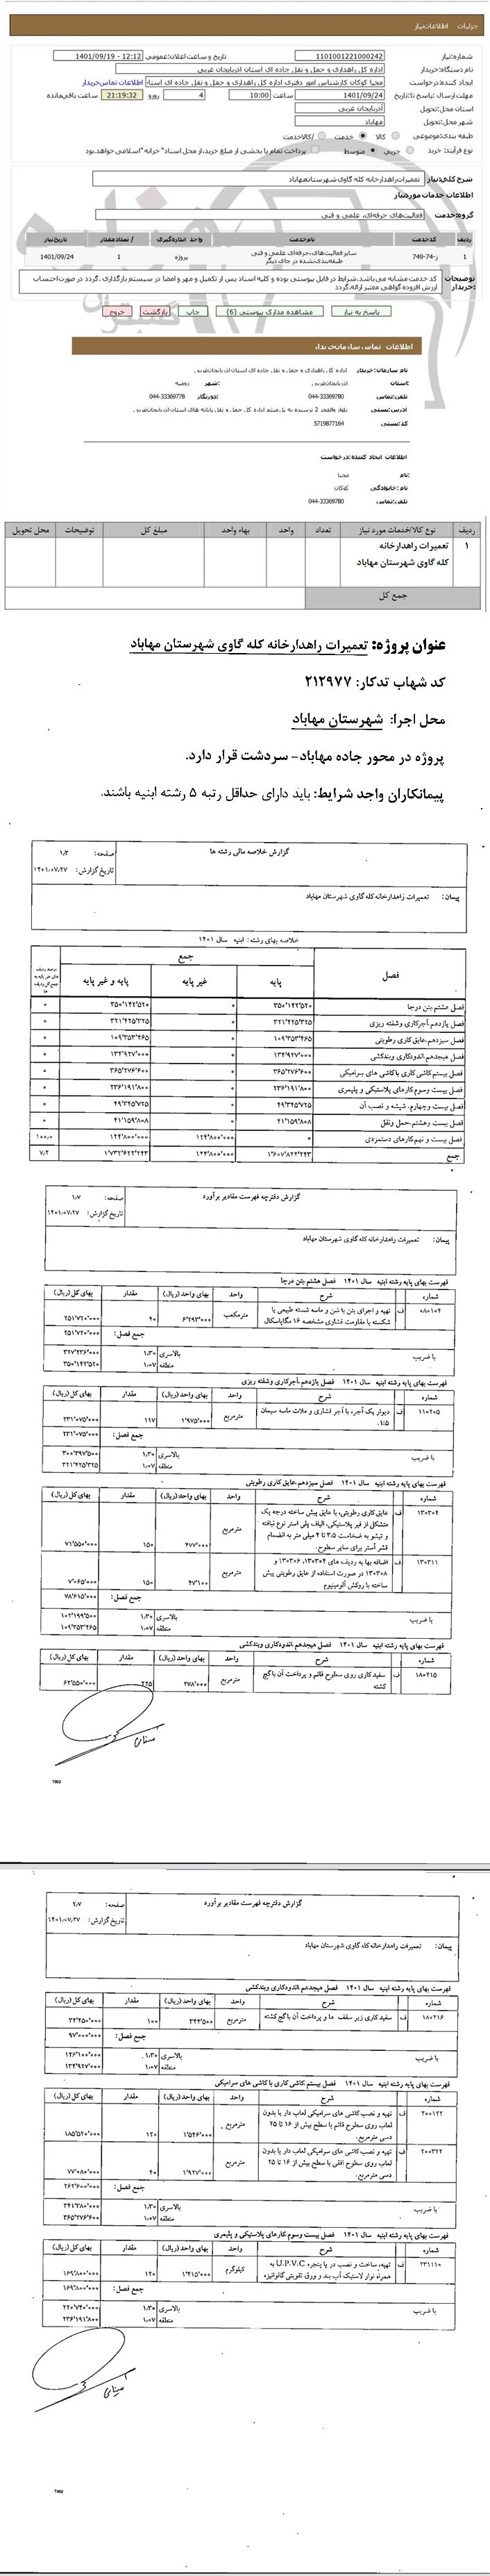 جزئیات اطلاعات نیاز
شماره نیاز: 1101001221000242
تاریخ و ساعت اعلان عمومی: 1401/09/19 - 12:12
نام دستگاه خریدار: اداره کل راهداری و حمل و نقل جاده ای استان اذربایجان غربی
ایجاد کننده درخواست: محیا کوکان کارشناس امور دفتری اداره کل راهداری و حمل و نقل جاده ای استان
اطلاعات تماس خریدار
مهلت ارسال پاسخ تا تاریخ: 1401/09/24 ساعت 10:00 4 روز و 21:19:32 ساعت باقی مانده
استان محل تحویل: آذربایجان غربی
شهر محل تحویل: مهاباد
طبقه بندی موضوعی: کالا خدمت کالا/خدمت
نوع فرآیند خرید: جزیی متوسط پرداخت تمام یا بخشی از مبلغ خرید،از محل اسناد "خزانه "اسلامی خواهد بود
شرح کلی نیاز: تعمیرات راهدارخانه کله گاوی شهرستان مهاباد
اطلاعات خدمات مورد نیاز
گروه خدمت: فعالیت های حرفه ای، علمی و فنی
ردیف کد خدمت نام خدمت واحد اندازه گیری تعداد / مقدار تاریخ نیاز
1 ز-74-749 سایر فعالیت های حرفه ای علمی و فنی طبقه بندی نشده در جای دیگر پروژه 1 1401/09/24
توضیحات خریدار: کد خدمت مشابه می باشد.شرایط در فایل پیوستی بوده و کلیه اسناد پس از تکمیل و مهر و امضا در سیستم بارگذاری .گردد در صورت احتساب ارزش افزوده گواهی معتبر ارائه گردد
پاسخ به نیاز مشاهده مدارک پیوستی (6) چاپ بازگشت خروج
اطلاعات تماس سازمان خریدار
نام سازمان خریدار: اداره کل راهداری و حمل و نقل جاده ای استان اذربایجان غربی
استان: آذربایجان غربی شهر: ارومیه
تلفن تماس: 33369780-044 دورنگار: 33369778-044
آدرس پستی: بلوار والفجر 2 نرسیده به پل میثم اداره کل حمل و نقل پایانه های استان اذربایجان غربی
کد پستی: 5719877164
اطلاعات ایجاد کننده درخواست
نام: محیا
نام خانوادگی: کوکان
تلفن تماس: 33369780-044
ردیف نوع کالا/خدمات مورد نیاز تعداد واحد بهاء واحد مبلغ کل توضیحات محل تحویل
۱ تعمیرات راهدارخانه
کله گاوی شهرستان مهاباد
جمع کل
عنوان پروژه: تعمیرات راهدارخانه کله گاوی شهرستان مهاباد
کد شهاب تدکار: ۲۱۲۹۷۷
محل اجرا: شهرستان مهاباد
پروژه در محور جاده مهاباد- سردشت قرار دارد.
پیمانکاران واجد شرایط: باید دارای حداقل رتبه ۵ رشته ابنیه باشند.
گزارش خلاصه مالی رشته ها
صفحه: ۱/۳
تاریخ گزارش: ۱۴۰۱/۰۷/۲۷
پیمان: تعمیرات راهدارخانه کله گاوی شهرستان مهاباد
خلاصه بهای رشته: ابنیه سال ۱۴۰۱
فصل جمع
پایه غیر پایه پایه و غیر پایه
فصل هشتم.بتن درجا ۳۵۰٬۱۴۲٬۵۲۰ ۰ ۳۵۰٬۱۴۲٬۵۲۰ ۰
فصل یازدهم.آجرکاری وشفته ریزی ۳۲۱٬۴۲۵٬۳۲۵ ۰ ۳۲۱٬۴۲۵٬۳۲۵ ۰
فصل سیزدهم.عایق کاری رطوبتی ۱۰۹٬۳۵۳٬۴۶۵ ۰ ۱۰۹٬۳۵۳٬۴۶۵ ۰
فصل هیجدهم.اندودکاری وبندکشی ۱۳۴٬۹۲۷٬۰۰۰ ۰ ۱۳۴٬۹۲۷٬۰۰۰ ۰
فصل بیستم.کاشی کاری باکاشی های سرامیکی ۳۶۵٬۲۷۶٬۶۰۰ ۰ ۳۶۵٬۲۷۶٬۶۰۰ ۰
فصل بیست وسوم.کارهای پلاستیکی و پلیمری ۲۳۶٬۱۹۱٬۸۰۰ ۰ ۲۳۶٬۱۹۱٬۸۰۰ ۰
فصل بیست وچهارم. شیشه و نصب آن ۴۹٬۳۴۵٬۷۲۵ ۰ ۴۹٬۳۴۵٬۷۲۵ ۰
فصل بیست وهشتم.حمل ونقل ۴۱٬۱۵۹٬۸۰۸ ۰ ۴۱٬۱۵۹٬۸۰۸ ۰
فصل بیست و نهم.کارهای دستمزدی ۰ ۱۲۴٬۸۰۰٬۰۰۰ ۱۲۴٬۸۰۰٬۰۰۰ ۱۰۰/۰
جمع ۱٬۶۰۷٬۸۲۲٬۲۴۳ ۱۲۴٬۸۰۰٬۰۰۰ ۱٬۷۳۲٬۶۲۲٬۲۴۳ ۷/۲
گزارش دفترچه فهرست مقادیر برآورد
صفحه: ۱/۷
تاریخ گزارش: ۱۴۰۱/۰۷/۲۷
پیمان: تعمیرات راهدارخانه کله گاوی شهرستان مهاباد
فهرست بهای پایه رشته ابنیه سال ۱۴۰۱ فصل هشتم.بتن درجا
شماره شرح واحد بهای واحد (ریال) مقدار بهای کل (ریال)
۰۸۰۱۰۴ ف تهیه و اجرای بتن با شن و ماسه شسته طبیعی یا شکسته با مقاومت فشاری مشخصه ۱۶ مگاپاسکال مترمکعب ۶٬۲۹۳٬۰۰۰ ۴۰ ۲۵۱٬۷۲۰٬۰۰۰
جمع فصل: ۲۵۱٬۷۲۰٬۰۰۰
با ضریب بالاسری ۱/۳۰ ۳۲۷٬۲۳۶٬۰۰۰
منطقه ۱/۰۷ ۳۵۰٬۱۴۲٬۵۲۰
فهرست بهای پایه رشته ابنیه سال ۱۴۰۱ فصل یازدهم.آجرکاری وشفته ریزی
شماره شرح واحد بهای واحد (ریال) مقدار بهای کل (ریال)
۱۱۰۲۰۵ ف دیوار یک آجره با آجر فشاری و ملات ماسه سیمان ۱:۵. مترمربع ۱٬۹۷۵٬۰۰۰ ۱۱۷ ۲۳۱٬۰۷۵٬۰۰۰
جمع فصل: ۲۳۱٬۰۷۵٬۰۰۰
با ضریب بالاسری ۱/۳۰ ۳۰۰٬۳۹۷٬۵۰۰
منطقه ۱/۰۷ ۳۲۱٬۴۲۵٬۳۲۵
فهرست بهای پایه رشته ابنیه سال ۱۴۰۱ فصل سیزدهم.عایق کاری رطوبتی
شماره شرح واحد بهای واحد (ریال) مقدار بهای کل (ریال)
۱۳۰۳۰۴ ف عایق کاری رطوبتی، با عایق پیش ساخته درجه یک متشکل از قیر پلاستیکی، الیاف پلی استر نوع نبافته و تیشو به ضخامت ۳/۵ تا ۴ میلی متر به انضمام قشر آستر برای سایر سطوح. مترمربع ۴۷۷٬۰۰۰ ۱۵۰ ۷۱٬۵۵۰٬۰۰۰
۱۳۰۳۱۱ ف اضافه بها به ردیف های ۱۳۰۳۰۴، ۱۳۰۳۰۶ و ۱۳۰۳۰۸ در صورت استفاده از عایق رطوبتی پیش ساخته با روکش آلومینیوم مترمربع ۴۷٬۱۰۰ ۱۵۰ ۷٬۰۶۵٬۰۰۰
جمع فصل: ۷۸٬۶۱۵٬۰۰۰
با ضریب بالاسری ۱/۳۰ ۱۰۲٬۱۹۹٬۵۰۰
منطقه ۱/۰۷ ۱۰۹٬۳۵۳٬۴۶۵
فهرست بهای پایه رشته ابنیه سال ۱۴۰۱ فصل هیجدهم.اندودکاری وبندکشی
شماره شرح واحد بهای واحد (ریال) مقدار بهای کل (ریال)
۱۸۰۲۱۵ ف سفید کاری روی سطوح قائم و پرداخت آن با گچ کشته مترمربع ۲۷۸٬۰۰۰ ۲۲۵ ۶۲٬۵۵۰٬۰۰۰
T002
گزارش دفترچه فهرست مقادیر برآورد
صفحه: ۲/۷
تاریخ گزارش: ۱۴۰۱/۰۷/۲۷
پیمان: تعمیرات راهدارخانه کله گاوی شهرستان مهاباد
فهرست بهای پایه رشته ابنیه سال ۱۴۰۱ فصل هیجدهم.اندودکاری وبندکشی
شماره شرح واحد بهای واحد (ریال) مقدار بهای کل (ریال)
۱۸۰۲۱۶ ف سفید کاری زیر سقف ها و پرداخت آن با گچ کشته مترمربع ۳۴۴٬۵۰۰ ۱۰۰ ۳۴٬۴۵۰٬۰۰۰
جمع فصل: ۹۷٬۰۰۰٬۰۰۰
با ضریب بالاسری ۱/۳۰ ۱۲۶٬۱۰۰٬۰۰۰
منطقه ۱/۰۷ ۱۳۴٬۹۲۷٬۰۰۰
فهرست بهای پایه رشته ابنیه سال ۱۴۰۱ فصل بیستم.کاشی کاری باکاشی های سرامیکی
شماره شرح واحد بهای واحد (ریال) مقدار بهای کل (ریال)
۲۰۰۱۲۲ ف تهیه و نصب کاشی های سرامیکی لعاب دار یا بدون لعاب روی سطوح قائم با سطح بیش از ۱۶ تا ۲۵ دسی مترمربع. مترمربع ۱٬۵۴۶٬۰۰۰ ۱۲۰ ۱۸۵٬۵۲۰٬۰۰۰
۲۰۰۳۲۲ ف تهیه و نصب کاشی های سرامیکی لعاب دار یا بدون لعاب روی سطوح افقی با سطح بیش از ۱۶ تا ۲۵ دسی مترمربع. مترمربع ۱٬۹۲۷٬۰۰۰ ۴۰ ۷۷٬۰۸۰٬۰۰۰
جمع فصل: ۲۶۲٬۶۰۰٬۰۰۰
با ضریب بالاسری ۱/۳۰ ۳۴۱٬۳۸۰٬۰۰۰
منطقه ۱/۰۷ ۳۶۵٬۲۷۶٬۶۰۰
فهرست بهای پایه رشته ابنیه سال ۱۴۰۱ فصل بیست وسوم.کارهای پلاستیکی و پلیمری
شماره شرح واحد بهای واحد (ریال) مقدار بهای کل (ریال)
۲۳۱۱۱۰ ف تهیه، ساخت و نصب در یا پنجره U.P.V.C به همراه نوار لاستیک آب بند و ورق تقویتی گالوانیزه کیلوگرم ۱٬۴۱۵٬۰۰۰ ۱۲۰ ۱۶۹٬۸۰۰٬۰۰۰
جمع فصل: ۱۶۹٬۸۰۰٬۰۰۰
با ضریب بالاسری ۱/۳۰ ۲۲۰٬۷۴۰٬۰۰۰
منطقه ۱/۰۷ ۲۳۶٬۱۹۱٬۸۰۰
T002